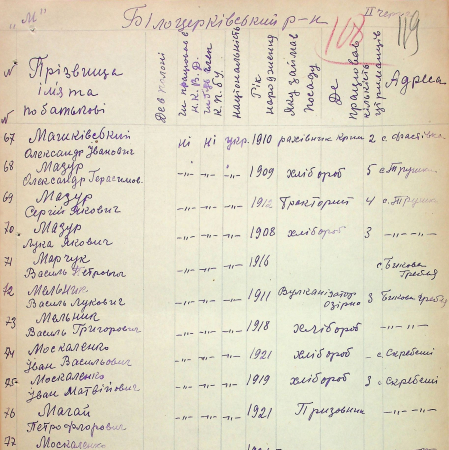 "М" Білоцерківський р-н ІІ 108 119
№ № Прізвища імя та по батькові Де в полоні чи працював Н.К.В.Д. чи був член К.П.б.У. національність Рік народження Яку займав посаду Де працював кількість утриманців Адреса
67 Машківський Олександр Іванович ні ні укр. 1910 рахівник 2
68 Мазур Олександр Герасимов. -"- -"- -"- 1909 хлібороб 5
69 Мазур Сергій Якович -"- -"- -"- 1912 Тракторий 4
70 Мазур Лука Якович -"- -"- -"- 1908 хлібороб 3 -"-"-
71 Марчук Василь Петрович -"- -"- -"- 1916 с. Бикова Гребля
72 Мельник Василь Лукович -"- -"- -"- 1911 Вулканізатор Озірно 3 Бикова Гребля
73 Мельник Василь Григорович -"- -"- -"- 1918 Хлібороб -"-"-
74 Москаленко Іван Васильович -"- -"- -"- 1921 хлібороб - с. Скребеші
75 Москаленко Іван Матвійович -"- -"- -"- 1919 хлібороб 3 с. Скребеші
76 Магай Петро Флорович -"- -"- -"- 1921 Призовник -"-"-
77 Москаленко